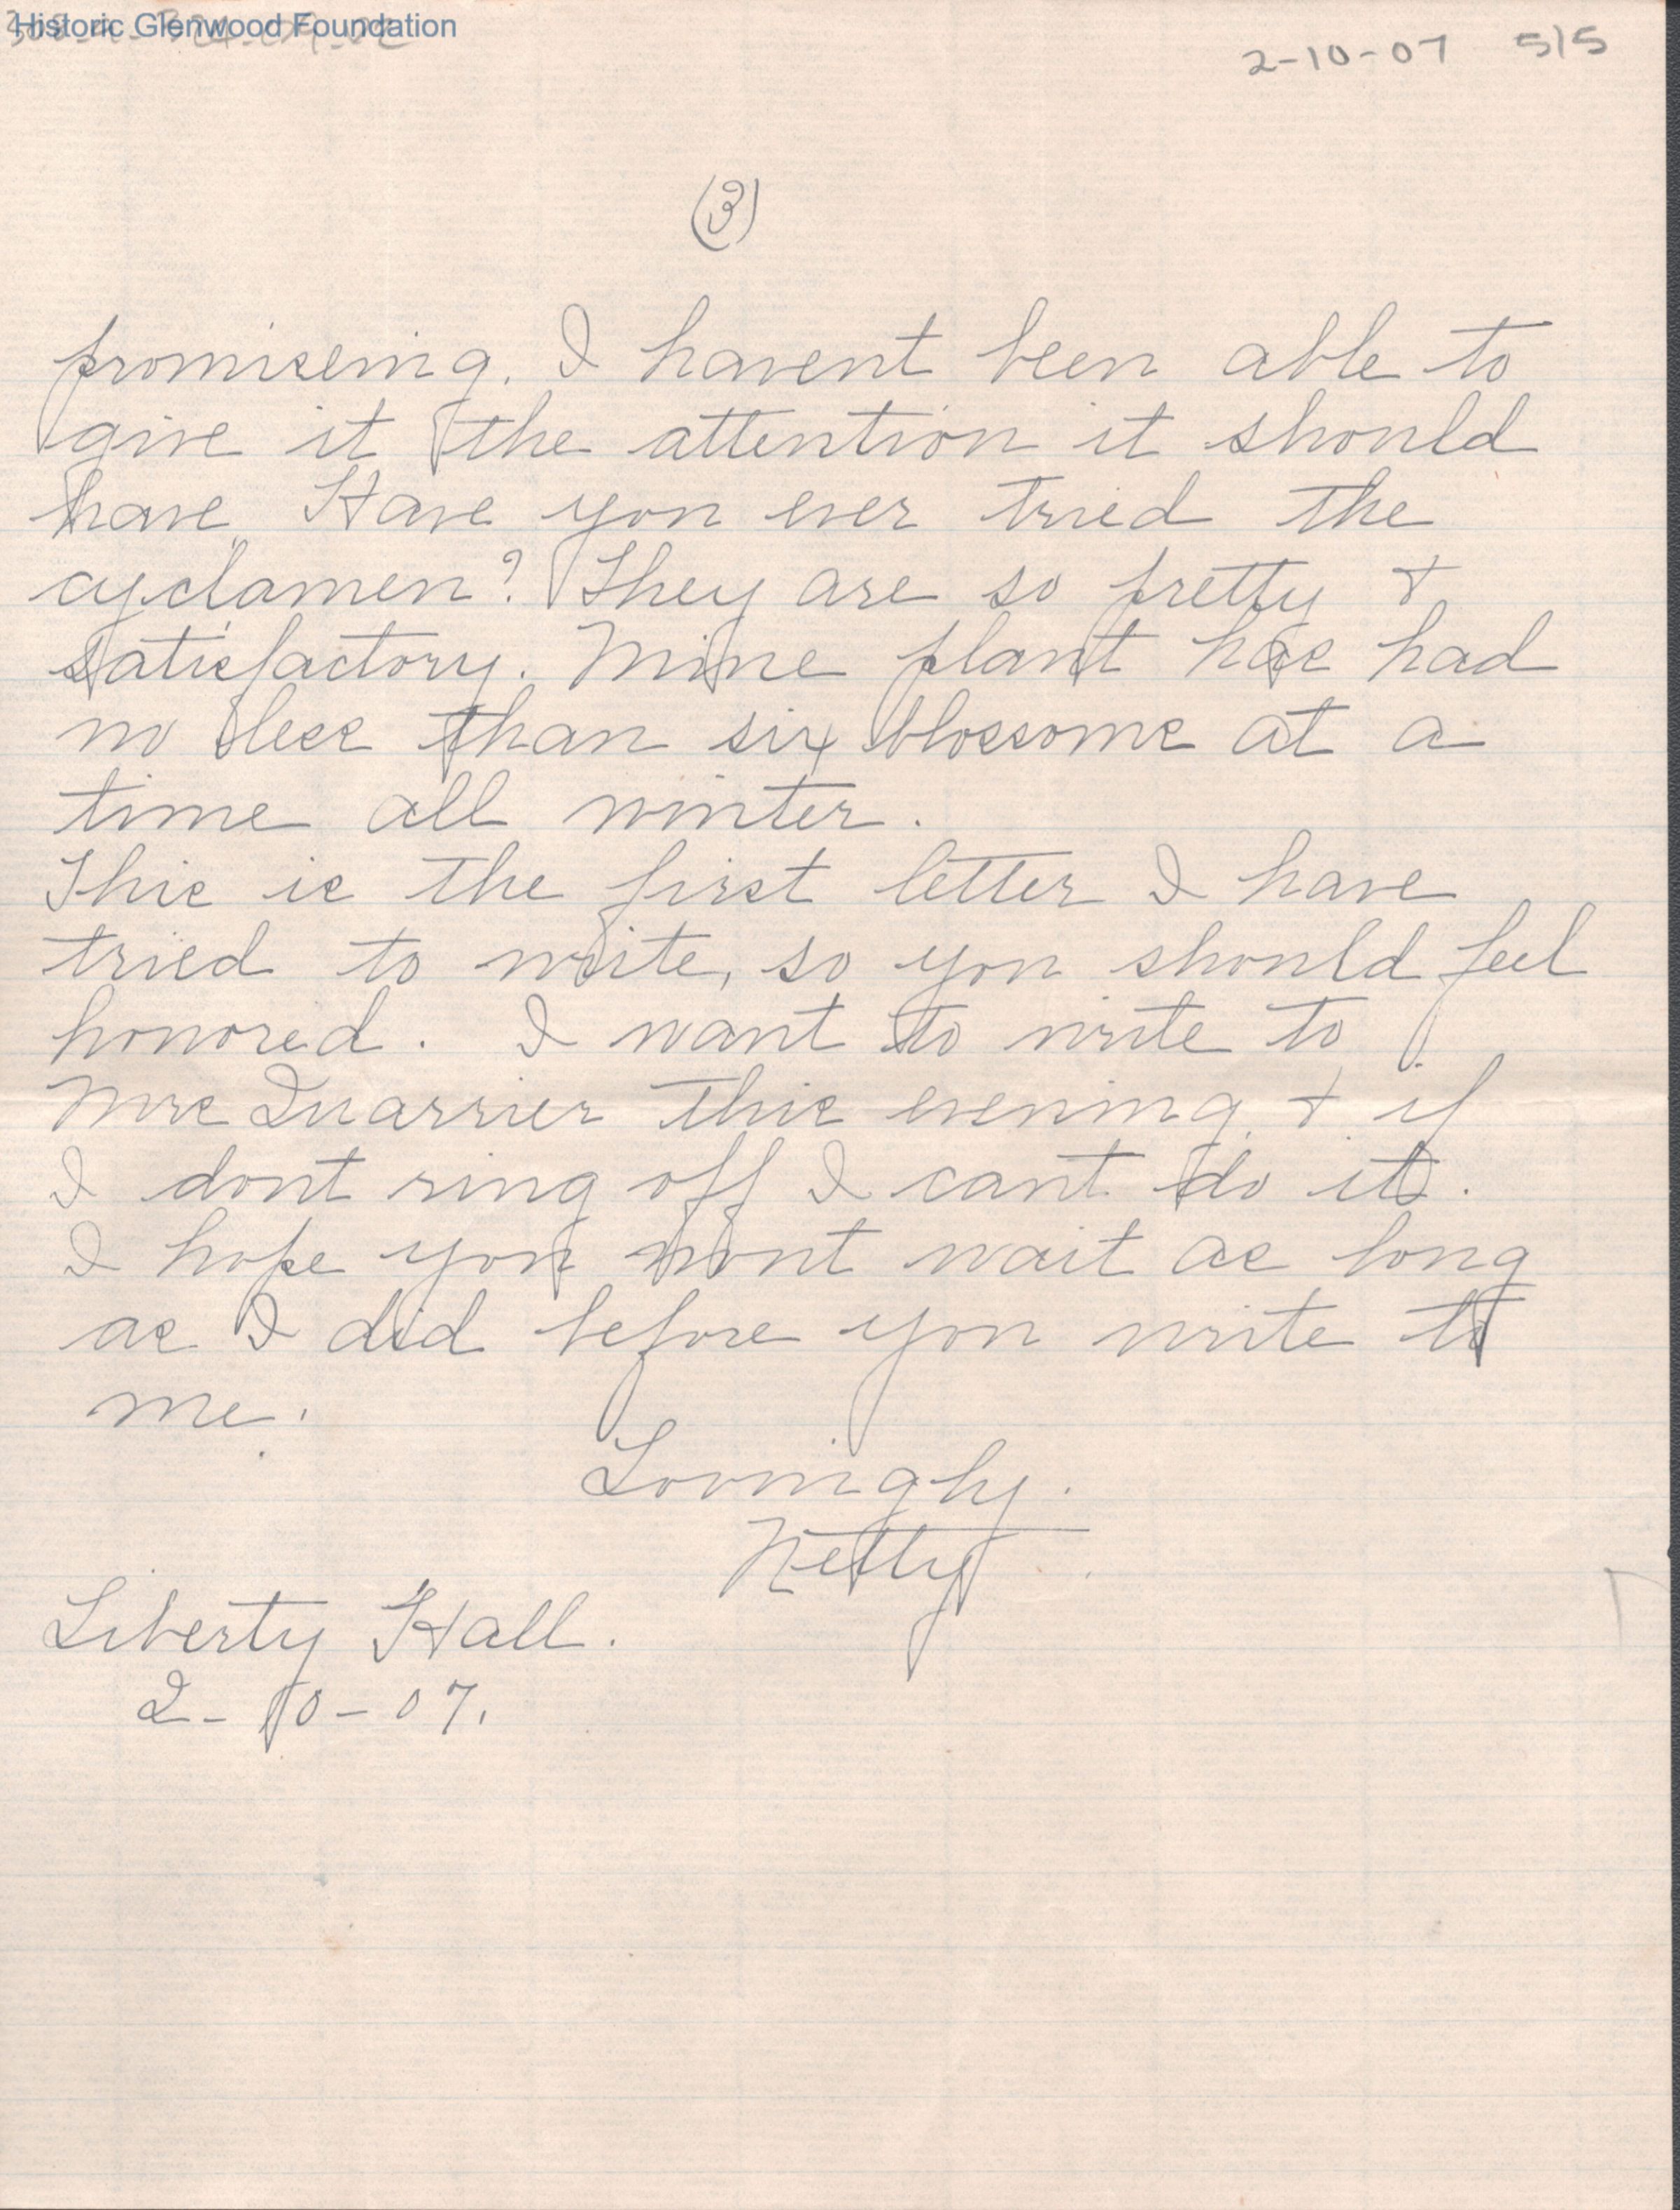 Historic Glenwood Foundation
2-10-07 5/5
(3)
promiseing. I havent been able to
give it the attention it should
have. Have you ever tried the
cyclamen? They are so pretty +
satisfactory. Mine plant has had
no less than six blossoms at a
time all winter.
This is the first letter I have
tried to write, so you should feel
honored. I want to write to
Mrs Quarrier this evening, + if
I dont ring off I cant do it.
I hope you wont wait as long
as I did before you write to
me.
Lovingly.
Netty
Liberty Hall.
2-10-07.